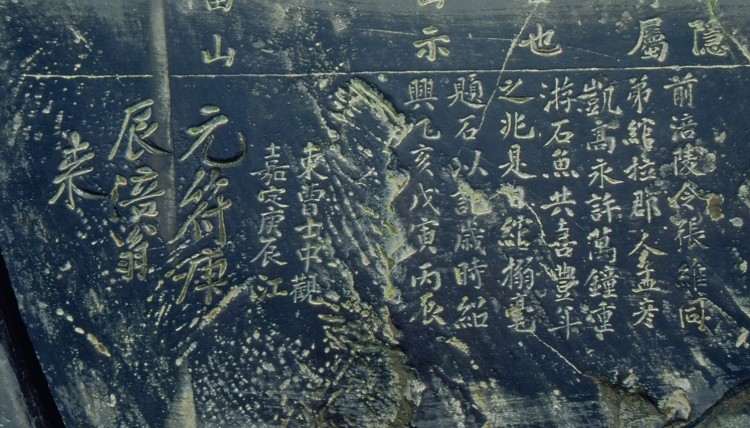 隱
屬
也
示
山
前涪陵令張維同
弟綰拉郡人孟彥
凱高永許萬鍾重
游石魚共喜豐年
之兆是日綰搦毫
題石以記歲時紹
興乙亥戊寅丙辰
東曹士中觀
嘉定庚辰江
元符庚
辰涪翁
来